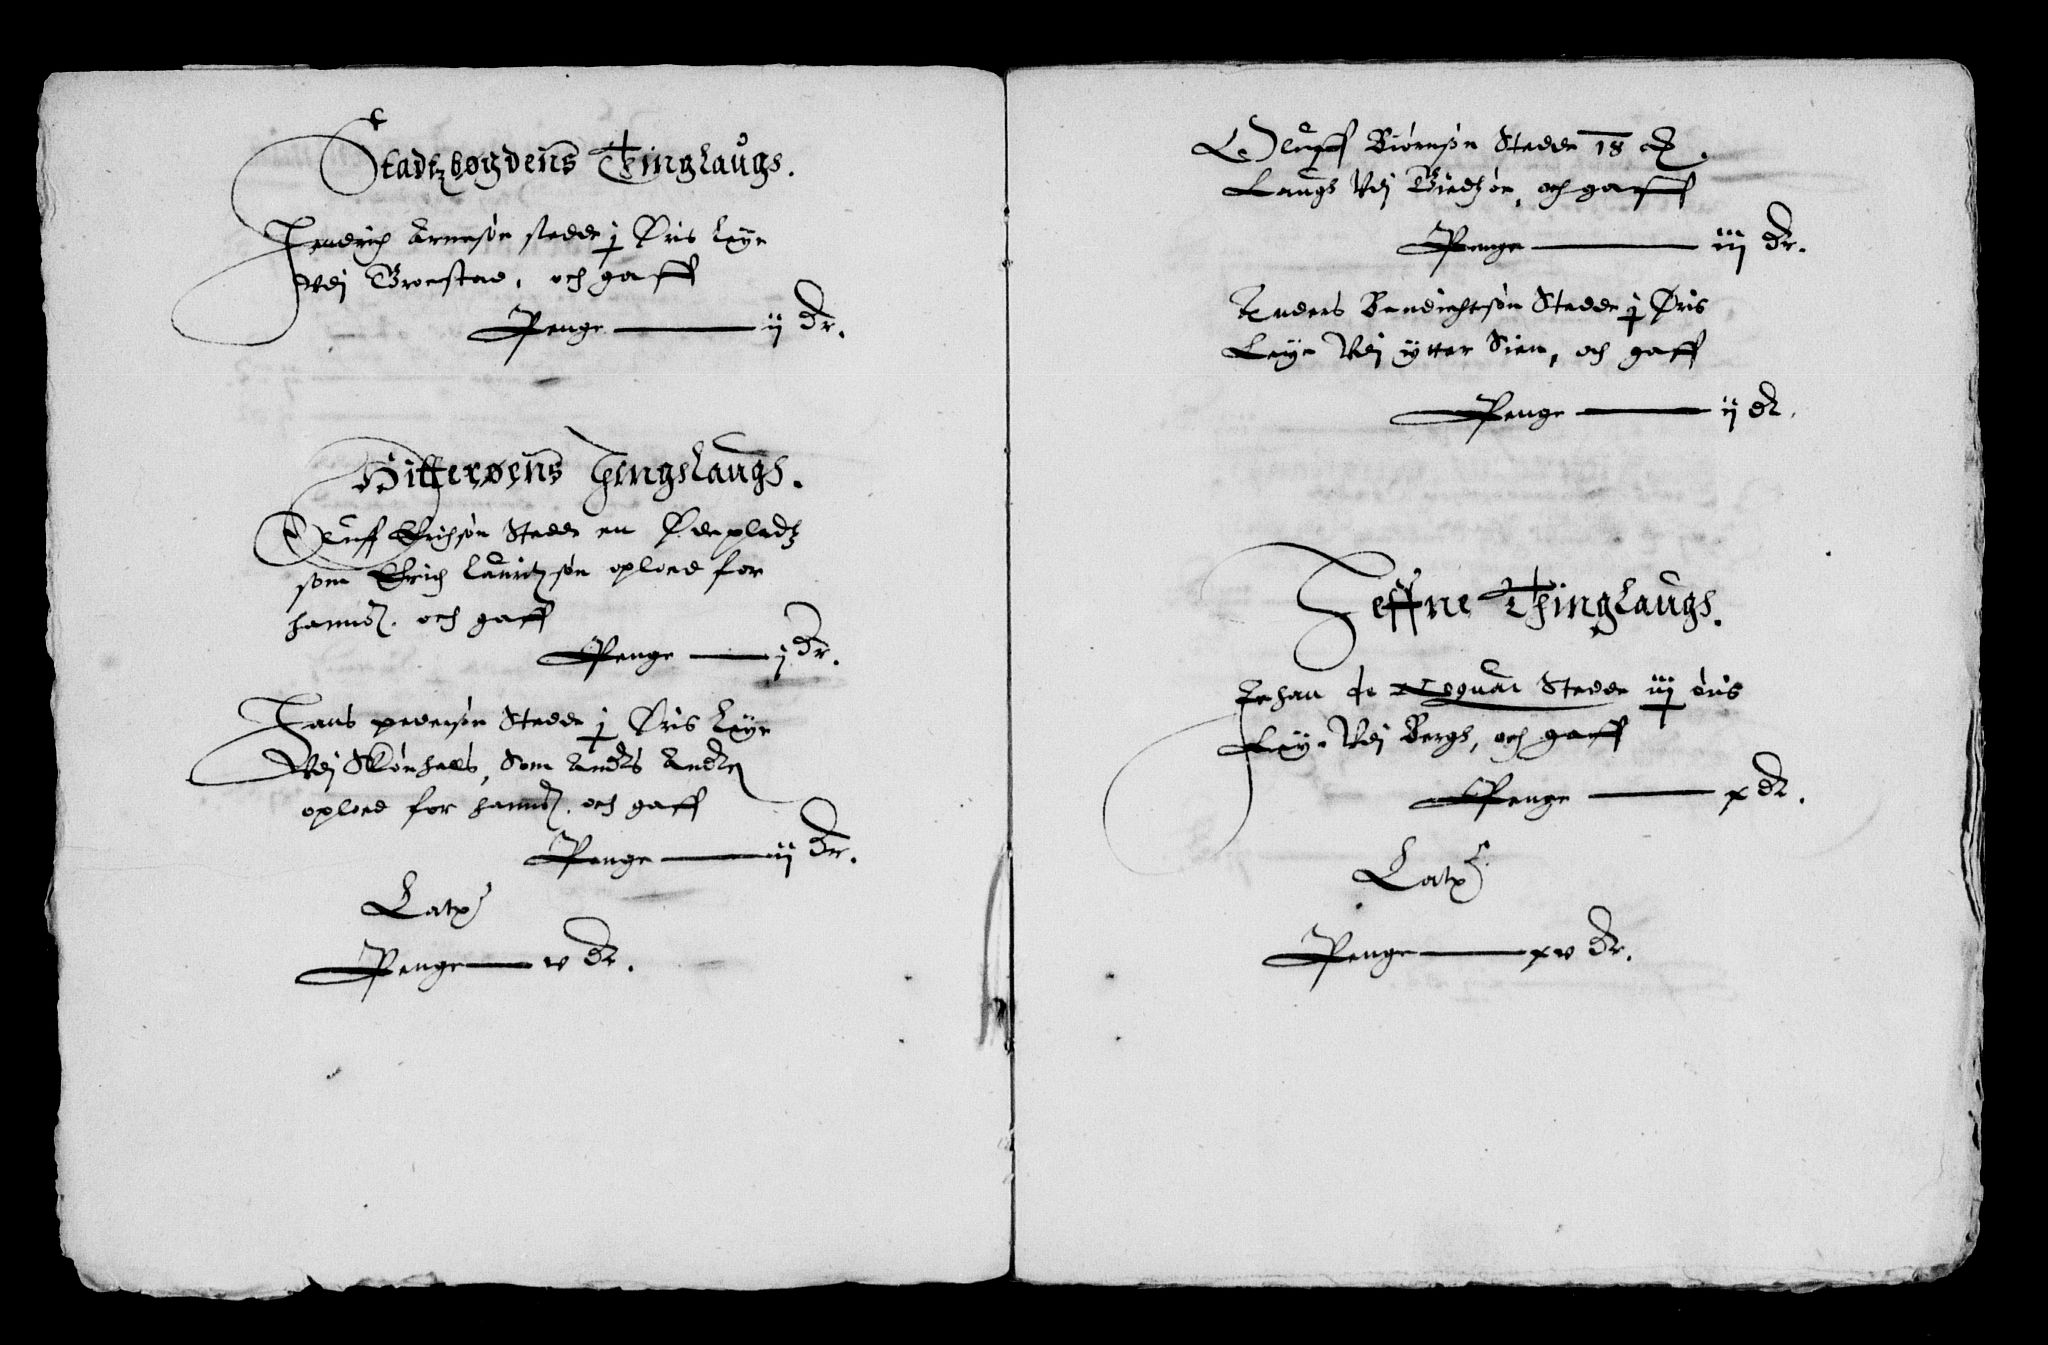 Stadtzbøÿdens Tinglaugs.
Hendrich Arnesøn stede j Øris leÿe
Vdj Groestad, och gaff
Penge ——— ij dr.
Hitterøens Tingslaugs.
Oluff Erichsøn Stede en Ødepladtz
som Erich Lauritzsøn oplod for
hannd. och gaff
Penge —— j dr.
Hans pedersøn Stede j Øris leÿe
Vdj Skønhals, Som Anders
oplod for hannd. och gaff
Penge ——— ij dr.
Latus
Penge —— v dr.
Oluff Biørnsøn Stede 18
Laugs Vdj och gaff
Penge ——— iij dr.
Anders Bendichtsøn Stede j Øris
Leÿe Vdj ÿtter Sien, och gaff
Penge ——— ij dr.
Jeffne Thinglaugs.
Johan de Stede iij øris
Leÿe Vdj Bergh, och gaff
Penge ——— x dr.
Latus
Penge ——— xv dr.